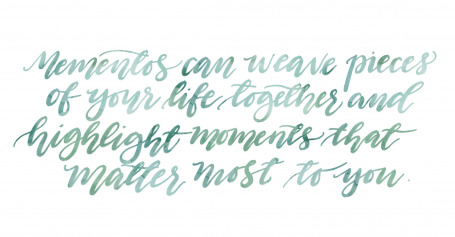 Mementos can weave pieces
of your life together and
highlight moments that
matter most to you.